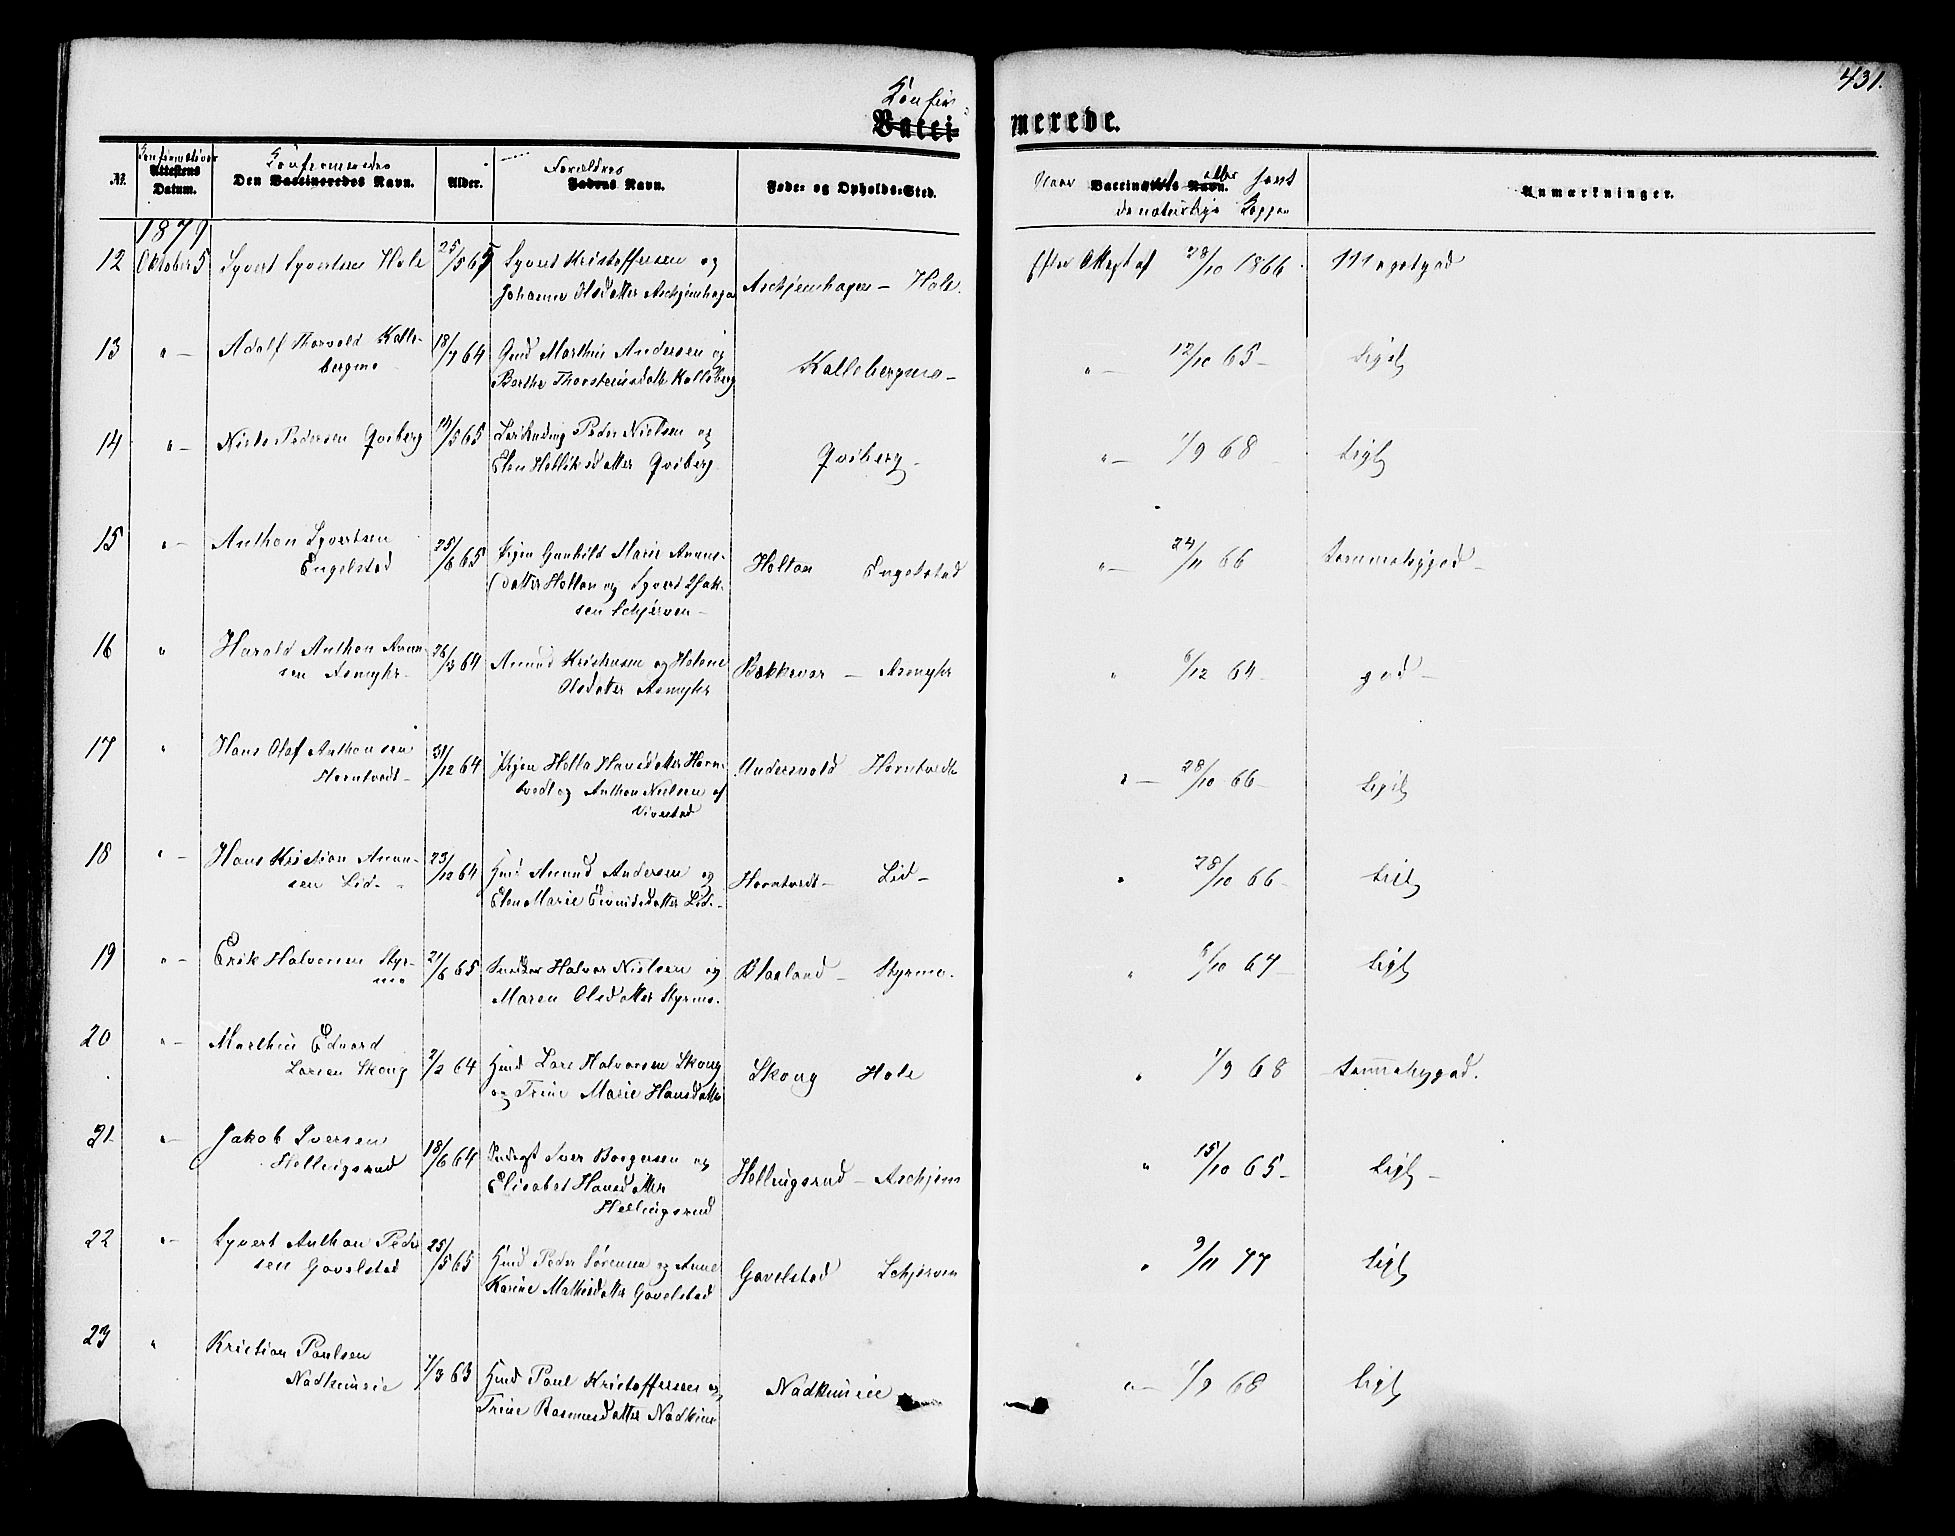 431.
Konfir
Vacci- merede.
Konfirmations
Attestens Datum.
No.
Konfirmeredes
Den Vaccineredes Navn.
Alder.
Forældres
Fadrens Navn.
Føde- og Opholds-Sted.
Naar Vaccineret eller havt
de naturlige Kopper
Anmærkninger.
1879
12 Oktober 5 Syvert Syvertsen Hole 25/5 65 Syvert Kristoffersen og
Johanne Olsdatter Askjemhagen Askjemhagen – Hole. Efter Attest af 28/10 1866. Meget god
13 " – Adolf Thorvald Kalle-
bergmo 18/7 64 Gmd Marthin Andersen og
Berthe Thorsteinsdatt. Kalleberg Kallebergmo – " – 12/10 65 – Ligl
14 " – Niels Pedersen Qviberg 19/5 65 Peder Nielsen og
Elen Helliksdatter Qviberg Qviberg – " – 1/9 68 – Ligl
15 " – Anthon Syvertsen
Engelstad 25/6 65 Pigen Gunhild Marie Amuns-
datter Holtan og Syvert Isak-
sen Schjerven – Holtan Engelstad " – 24/11 66 Temmelig god –
16 " Harald Anthon Amun-
sen Asmyhr – 26/3 64 Amund Kristiansen og Helene
Olsdatter Asmyhr Bækkevar – Asmyhr " 6/12 64 – god –
17 " Hans Olaf Anthonsen
Horntvedt – 31/12 64 Pigen Hella Hansdatter Horn-
tvedt og Anthon Nielsen af
Vivestad Undersvold Horntvedt " – 28/10 66 – Ligl
18 " – Hans Kristian Amun-
sen Lid – 23/12 64 Hmd Amund Andersen og
Elen Marie Eivindsdatter Lid – Horntvedt – Lid – " 28/10 66 – Ligl
19 " – Erik Halvorsen Styr-
mo 21/6 65 Snedker Halvor Nielsen og
Maren Olsdatter Styrmo. Flaaland – Styrmo. " 8/10 67 – Ligl
20 " – Marthin Edvard
Larsen Skoug 2/2 64 Hmd Lars Halvorsen Skoug
og Trine Marie Hansdatter Skoug Hole " 1/9 68 Temmelig god.
21 " – Jakob Iversen
Hellingsrud 18/6 64 Iver Borgersen og
Elisabet Hansdatter
Hellingsrud Hellingsrud – Askjem " 15/10 65 – Ligl –
22 " – Syvert Anthon Peder
sen Gavelstad 25/5 65 Hmd Peder Sørensen og Anne
Karine Mathisdatter Gavelstad Gavelstad Schjerven " 9/11 77 Ligl
23 " Kristian Paulsen
Nadkimrie 1/3 63 Hmd Paul Kristoffersen og
Trine Rasmusdatter Nadkim Nadkimrie " – 1/9 68 Ligl